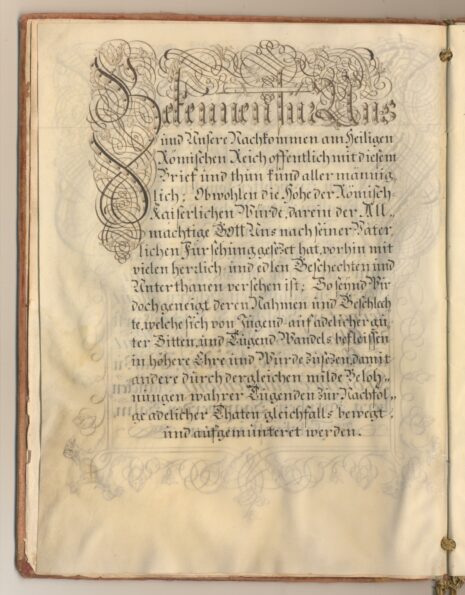 Bekennen für Uns
und Unsere Nachkommen am Heiligen
Römischen Reich offentlich mit diesem
Brief und thun kund aller männig„
lich; Obwohlen die Hohe der Römisch-
Kaiserlichen Würde, darein der All„
mächtige Gott Uns nach seiner Väter„
lichen Fürsehung gesezet hat, vorhin mit
vielen herzlich- und edlen Geschechten und
Unterthanen versehen ist; So seynd Wir
doch geneigt deren Nahmen und Geschlech
te, welche sich von Jugend auf adelicher gu„
ter Sitten, und Tugend Wandels befleissen
in höhere Ehre und Würde zusezen, damit
andere durch dergleichen milde Beloh„
nungen wahrer Tugenden zur Nachfol„
ge adelicher Thaten gleichfalls bewegt,
und aufgemunteret werden.